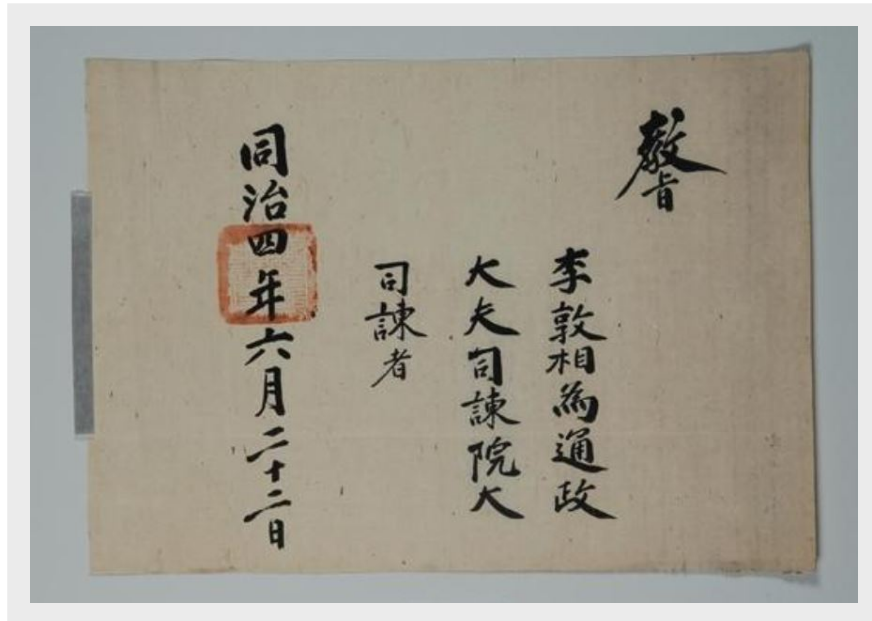 敎旨
李敦相爲通政
大夫司諫院大
司諫者
同治四年六月二十二日